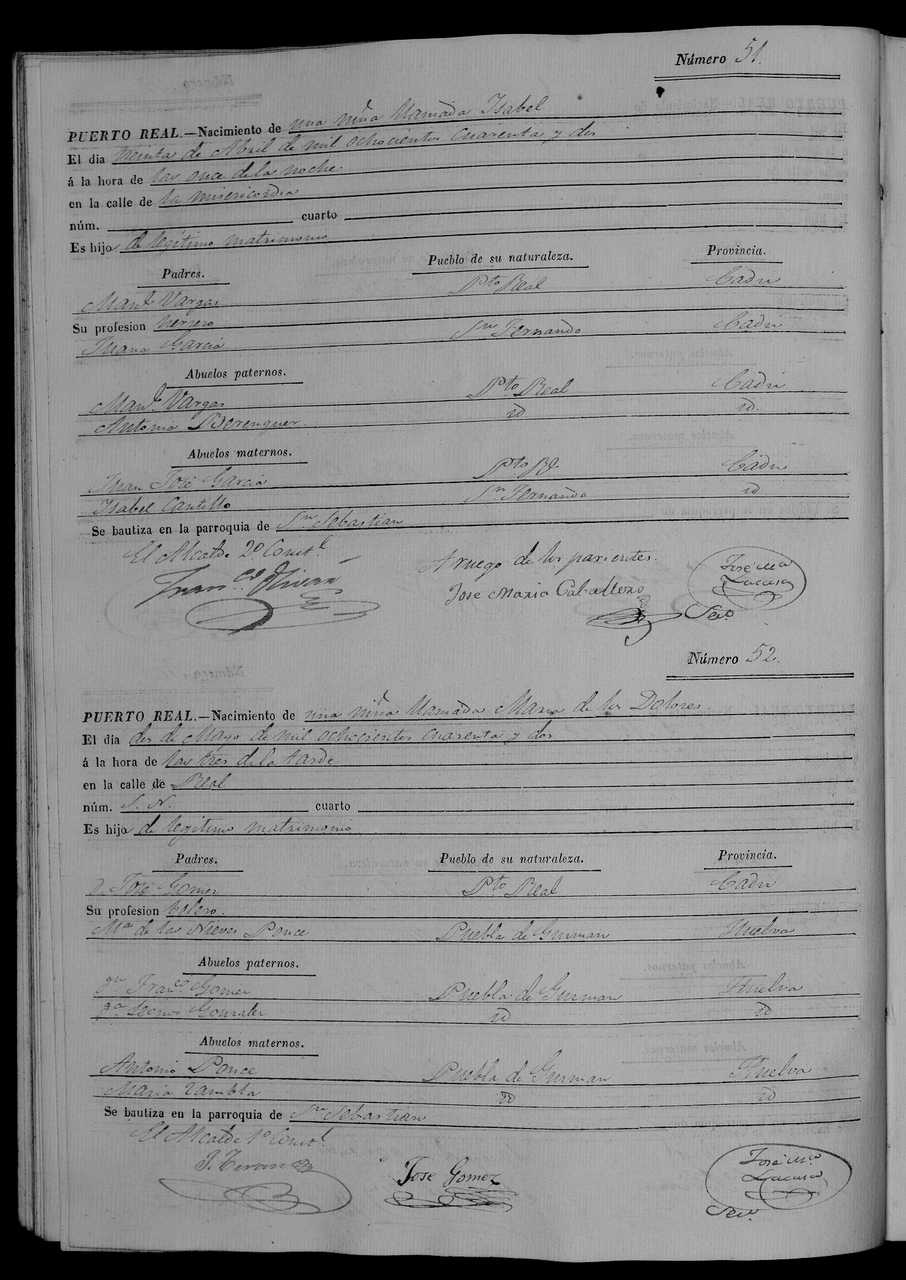 Número 51.
PUERTO REAL.—Nacimiento de una niña llamada Isabel
El dia treinta de Abril de mil ochocientos cuarenta y dos
á la hora de las once de la noche
en la calle de la misericordia
núm. cuarto
Es hijo de legitimo matrimonio
Padres. Pueblo de su naturaleza. Provincia.
Manl. Vargas Pto Real Cadiz
Su profesion herrero
Juana Garcia Sn Fernando Cadiz
Abuelos paternos.
Manl. Vargas Pto Real Cadiz
Antonia Berenguer id id.
Abuelos maternos.
Juan José Garcia Pto Rl. Cadiz
Isabel Cantillo Sn Fernando id
Se bautiza en la parroquia de Sn Sebastian
El Alcalde 2o Constl. A ruego de los parientes.
Franco José Ma
Jose Maria Caballero Lacusa
Sero.
Número 52.
PUERTO REAL.—Nacimiento de una niña llamada Maria de los Dolores.
El dia dos de Mayo de mil ochocientos cuarenta y dos
á la hora de las tres de la tarde
en la calle de Real
núm. S. N. cuarto
Es hijo de legitimo matrimonio
Padres. Pueblo de su naturaleza. Provincia.
José Gomez Pto Real Cadiz
Su profesion
Ma de las Nieves Ponce Puebla de Gusman Huelva
Abuelos paternos.
Dn Franco. Gomez Puebla de Gusman Huelva
Da Gonzalez id id
Abuelos maternos.
Antonio Ponce Puebla de Gusman Huelva
Maria id id
Se bautiza en la parroquia de Sn Sebastian
El Alcalde 1o Constl.
José Ma
Jose Gomez Lacusa
Sero.